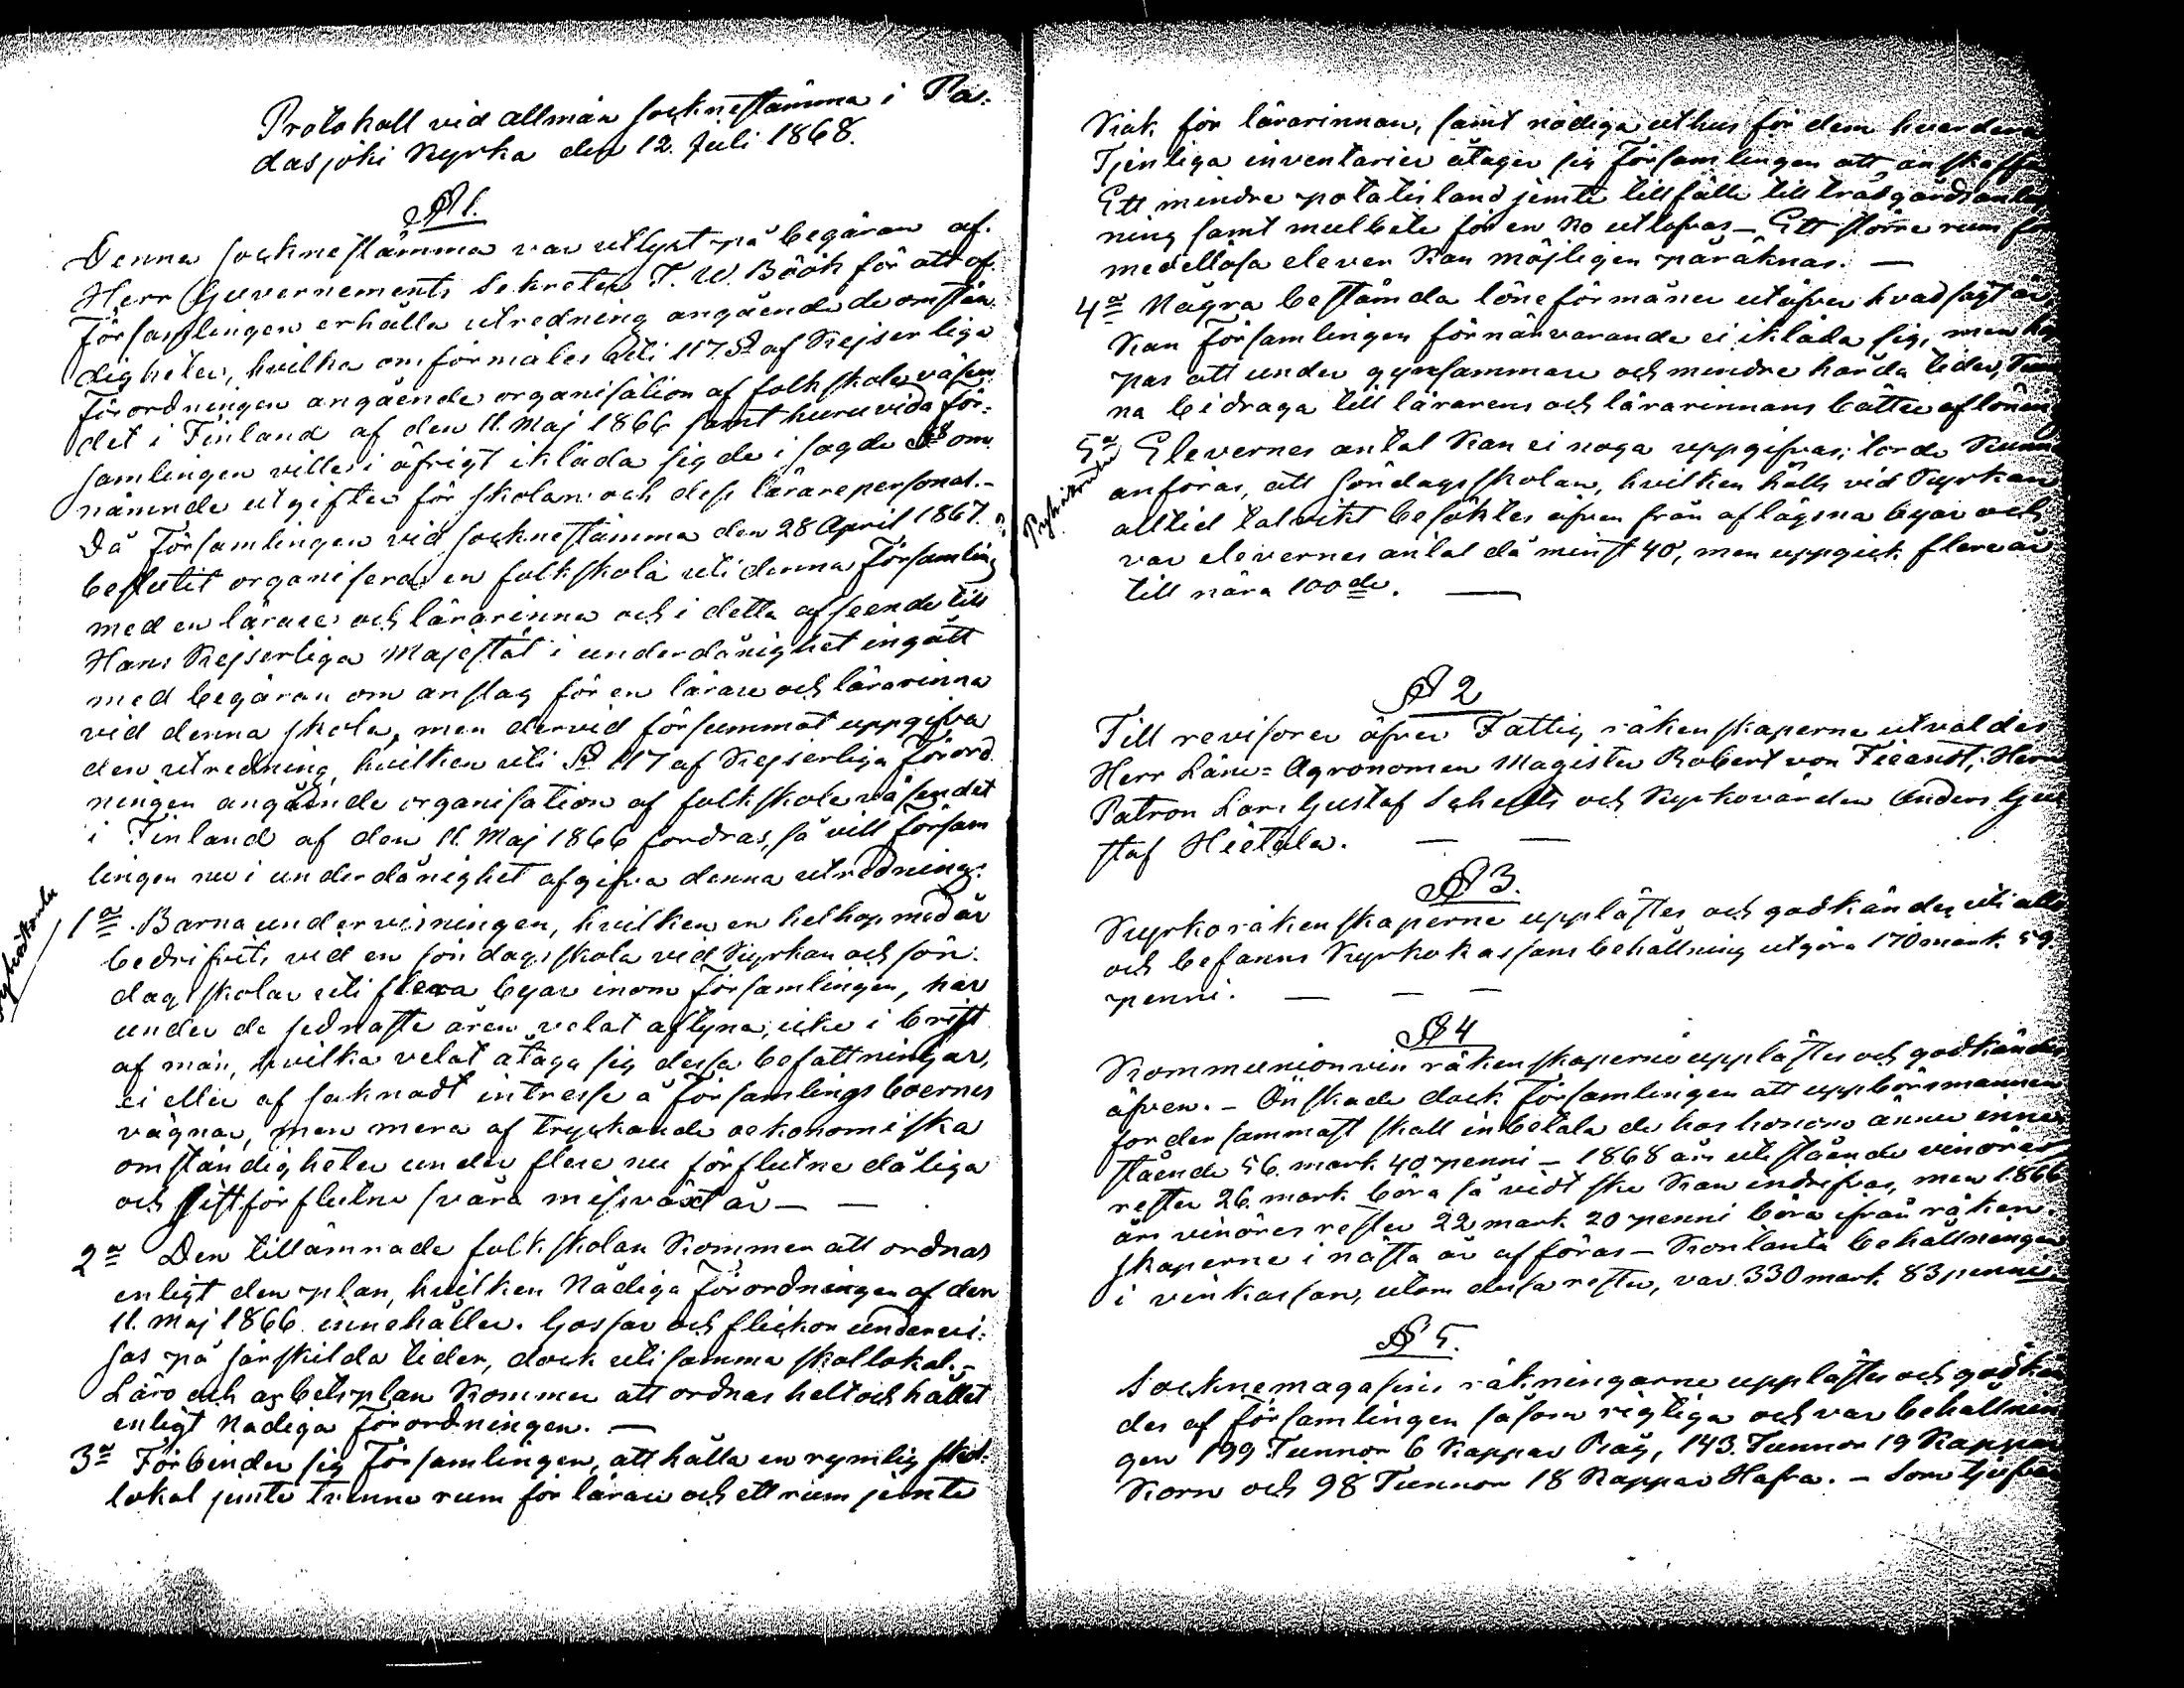 Protokoll vid allmän socknestämma i Pa-
dasjoki Kyrka den 12. Juli 1868.
§ 1.
Denna socknestämma var utlyst på begäran af
Herr Guvernements Sekreter T. W. Böök för att af
Församlingen erhålla utredning angående de omstän
digheter, hvilka omförmäles uti 117 § af Kejserliga
Förordningen angående organisation af folkskolevåsen
det i Finland af den 11. Maj 1866 samt huruvida för-
samlingen ville i öfrigt ikläda sig de i sagde § om
nämnde utgifter för skolan och dess lärarepersonal.-
Då Församlingen vid socknestämma den 28 April 1867.
beslutit organisera en folkskola uti denna Församling
med en lärare och lärarinna och i detta afseende till
Hans Kejserliga Majestät i underdånighet ingått
med begäran om anslag för en lärare och lärarinna
vid denna skola, men dervid försummat uppgifva
den utredning, hvilken uti § 117 af Kejserliga Förord
ningen angående organisation af folkskolevåsendet
i Finland af den 11. Maj 1866 fordras, så vill Försam
lingen nu i underdånighet afgifva denna utredning.
1a. Barnaundervisningen, hvilken en hel hop med år
bedrifvits vid en söndagsskola vid Kyrkan och sön-
dagsskolar uti flera byar inom församlingen, har
under de sednaste åren velat aftyna, icke i brist
af män, hvilka velat åtaga sig dessa befattningar,
ei eller af saknadt intresse å Församlingsboernes
vägnar, men mera af tryckande oekonomiska
omständigheter under flere nu förflutne dåliga
och sistförflutne svåra missväxtår — —
2a Den tillämnade folkskolan kommer att ordnas
enligt den plan, hvilken Nådiga Förordningen af den
11. Maj 1866 innehåller. Gossar och flickor undervi-
sas på särskilda tider, dock uti samma skollokal.-
Läro och arbetsplan kommer att ordnas helt och hållet
enligt Nådiga Förordningen. —
3a Förbinder sig Församlingen, att hålla en rymlig skol-
lokal jemte trenne rum för lärare och ett rum jemte
Kök för lärarinnan, samt nödiga uthus för dem hvardera
Tjenliga inventarier åtager sig Församlingen att anskaffa
Ett mindre potatisland jemte tillfälle till trädgårdsanläg
ning samt mulbete för en ko utlofvas — Ett större rum för
medellösa elever kan möjligen påräknas. —
4a Några bestämda löneförmåner utöfver hvad sagt är,
kan Församlingen förnärvarande ei ikläda sig, men
pas att under gynsammare och mindre hårda tider, kun
na bidraga till lärarens och lärarinnans bättre aflönan
5a Elevernes antal kan ei noga uppgifvas; torde kunna
anföras, att söndagsskolan, hvilken hölls vid Kyrkan
alltid talrikt besöktes äfven från aflägsna byar och
var elevernes antal då minst 40, men uppgick flere år
till nära 100de. —
§ 2
Till revisorer öfver Fattig räkenskaperne utvaldes
Herr Läns-Agronomen Magister Robert von Fieandt, Herr
Patron Lars Gustaf och Kyrkovärden Anders Gu
staf Hietala. — —
§ 3.
Kyrkoräkenskaperne upplästes och godkändes uti allo
och befanns Kyrkokassans behållning utgöra 170 mark 59
penni. — — —
§ 4
Kommunionvin räkenskaperne upplästes och godkändes
äfven. — Önskade dock Församlingen att uppbördsmannen
fordersammast skall inbetala de hos honom ännu inne
stående 56. mark 40 penni — 1868 års utestående vinöres
rester 26. mark böra så vidt ske kan indrifvas, men 1866
års vinöres rester 22 mark 20 penni böra ifrån räken-
skaperne i nästa år afföras — Kontanta behållningen
i vinkassan, utom dessa rester, var 330 mark 83 penni.
§ 5.
Socknemagasins räkningarne upplästes och godkän
des af Församlingen såsom rigtiga och var behållnin
gen 199 Tunnor 6 Kappar Råg, 143. Tunnor 19 Kappar
Korn och 98 Tunnor 18 Kappar Hafra. — Som